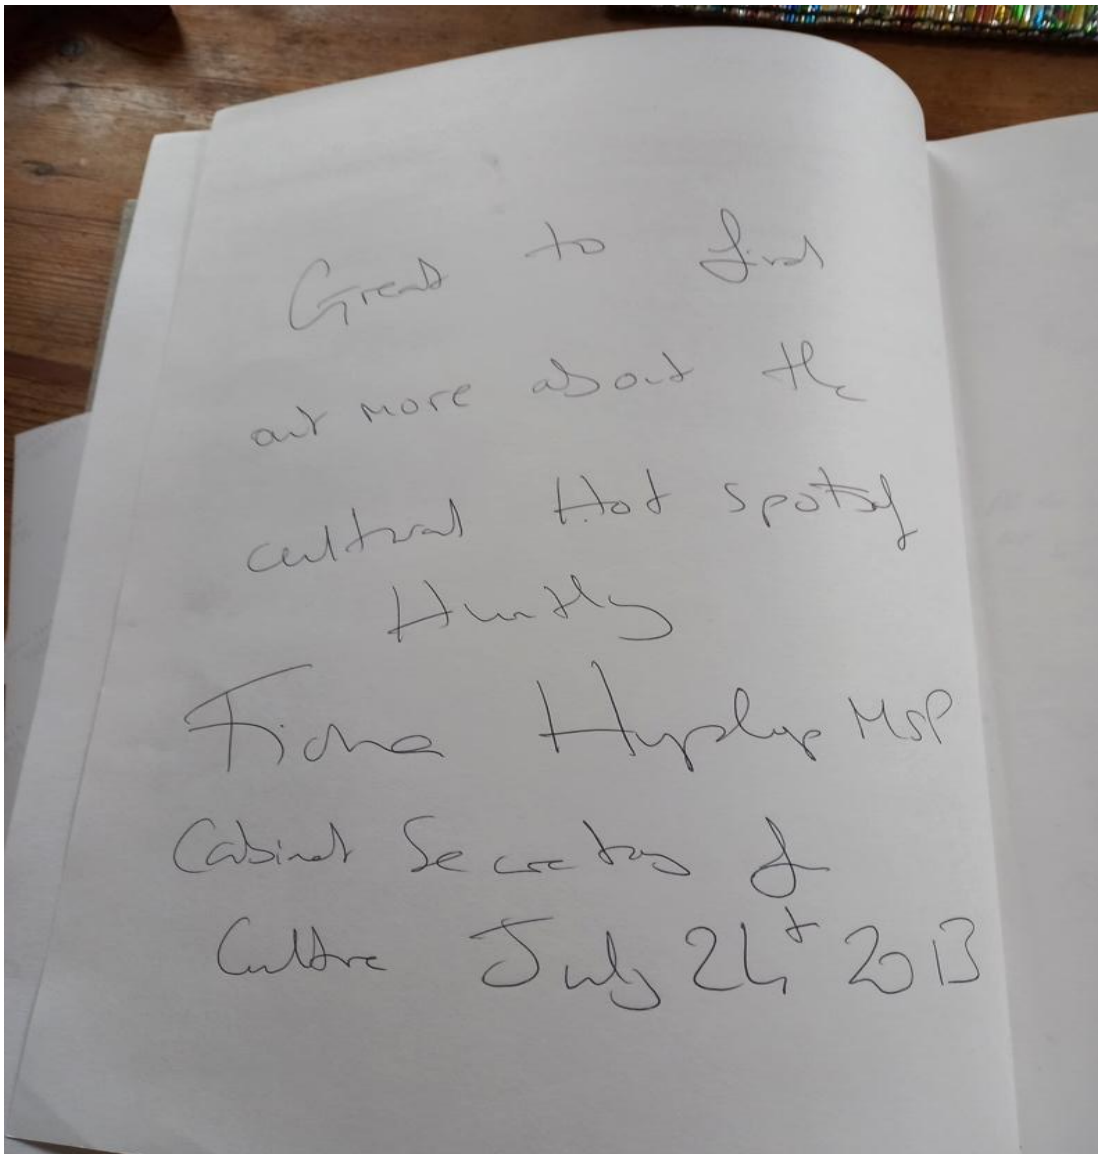 Great to find
out more about the
cultural Hot spot of
Huntly
Fiona Hyslop MSP
Cabinet Secretary for
Culture July 24th 2013